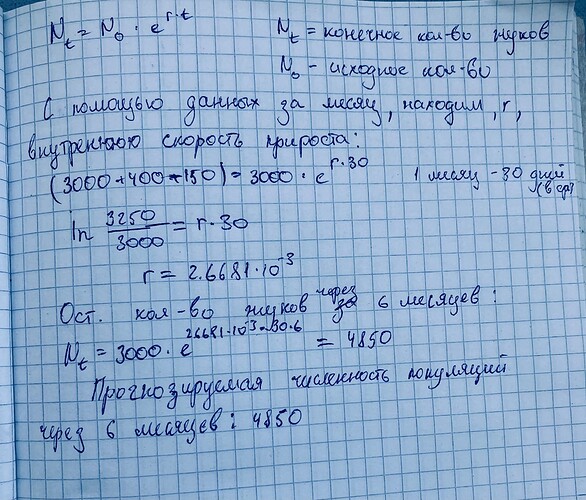 N_t = N_0 · e^{r·t}
N_t = конечное кол-во жуков
N_0 - исходное кол-во
С помощью данных за месяц, находим, r,
внутреннюю скорость прироста:
(3000+400-150) = 3000 · e^{r·30}
1 месяц - 30 дней
(в ср)
ln 3250/3000 = r·30
r = 2.6681·10^{-3}
Ост. кол-во жуков через 6 месяцев:
N_t = 3000 · e^{2.6681·10^{-3}·30·6} = 4850
Прогнозируемая численность популяций
через 6 месяцев: 4850